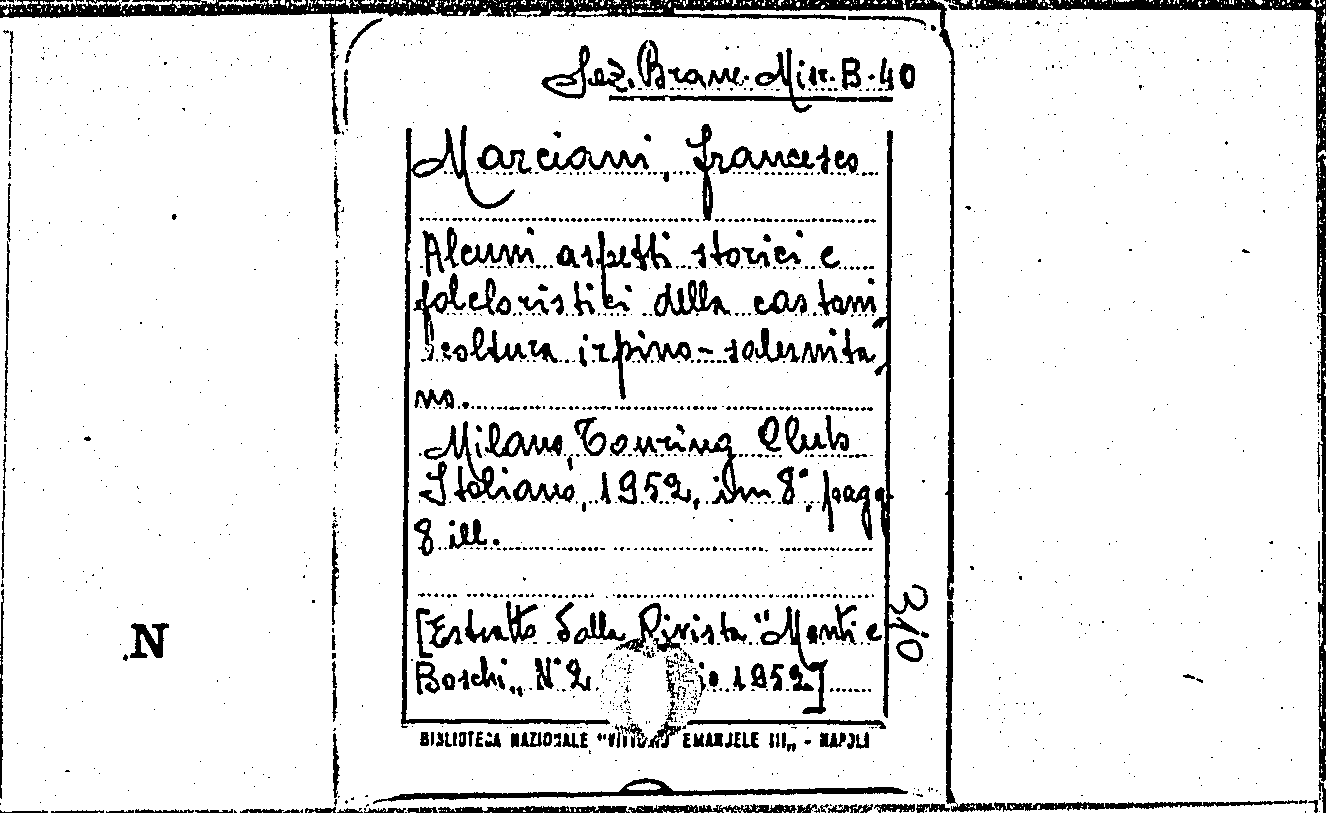 Sez. Branc. Misc. B. 40
Marciani, Francesco
Alcuni aspetti storici e
folcloristici della castani,
coltura irpino-salernita,
na.
Milano, Touring Club
Italiano, 1952, in 8°, pagg
8 ill.
[Estratto dalla Rivista "Monti e
Boschi„ N° 2 1952]
310
N
BIBLIOTECA NAZIONALE "VITTORIO EMANUELE III„ - NAPOLI